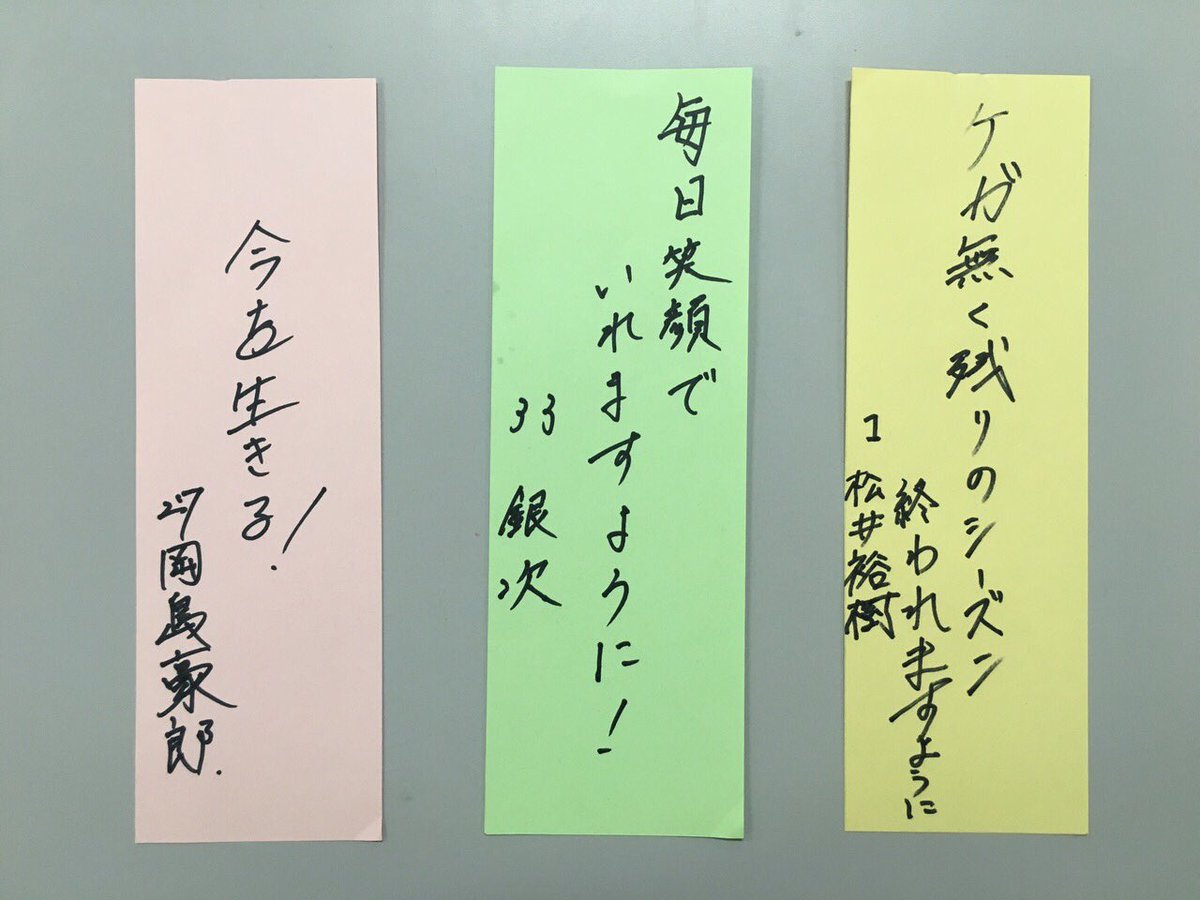 ケガ無く残りのシーズン
終われますように
1 松井裕樹
毎日笑顔で
いれますように!
33 銀次
今を生きる!
27 岡島豪郎.